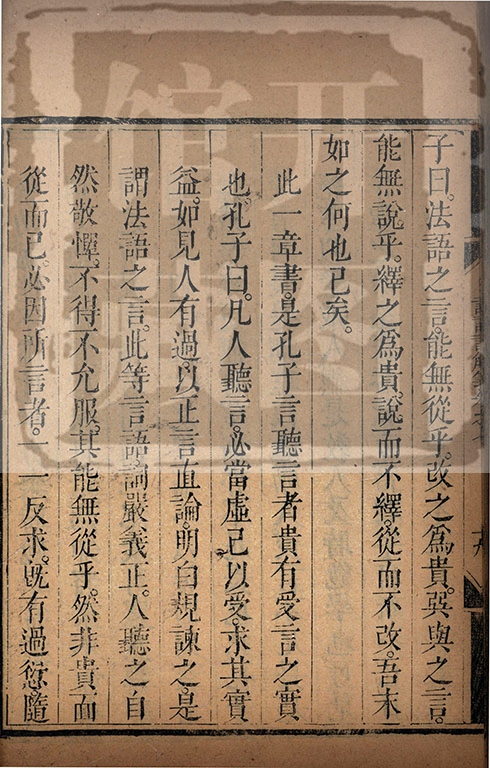 子曰。法語之言。能無從乎。改之爲貴。巽與之言。
能無說乎。繹之爲貴。說而不繹。從而不改。吾末
如之何也已矣。
此一章書。是孔子言聽言者貴有受言之實
也。孔子曰。凡人聽言。必當虛己以受。求其實
益。如見人有過。以正言直論。明白規諫之。是
謂法語之言。此等言語。論嚴義正。人聽之自
然敬憚。不得不允服。其能無從乎。然非貴面
從而已。必因所言者。一一反求。旣有過愆。隨